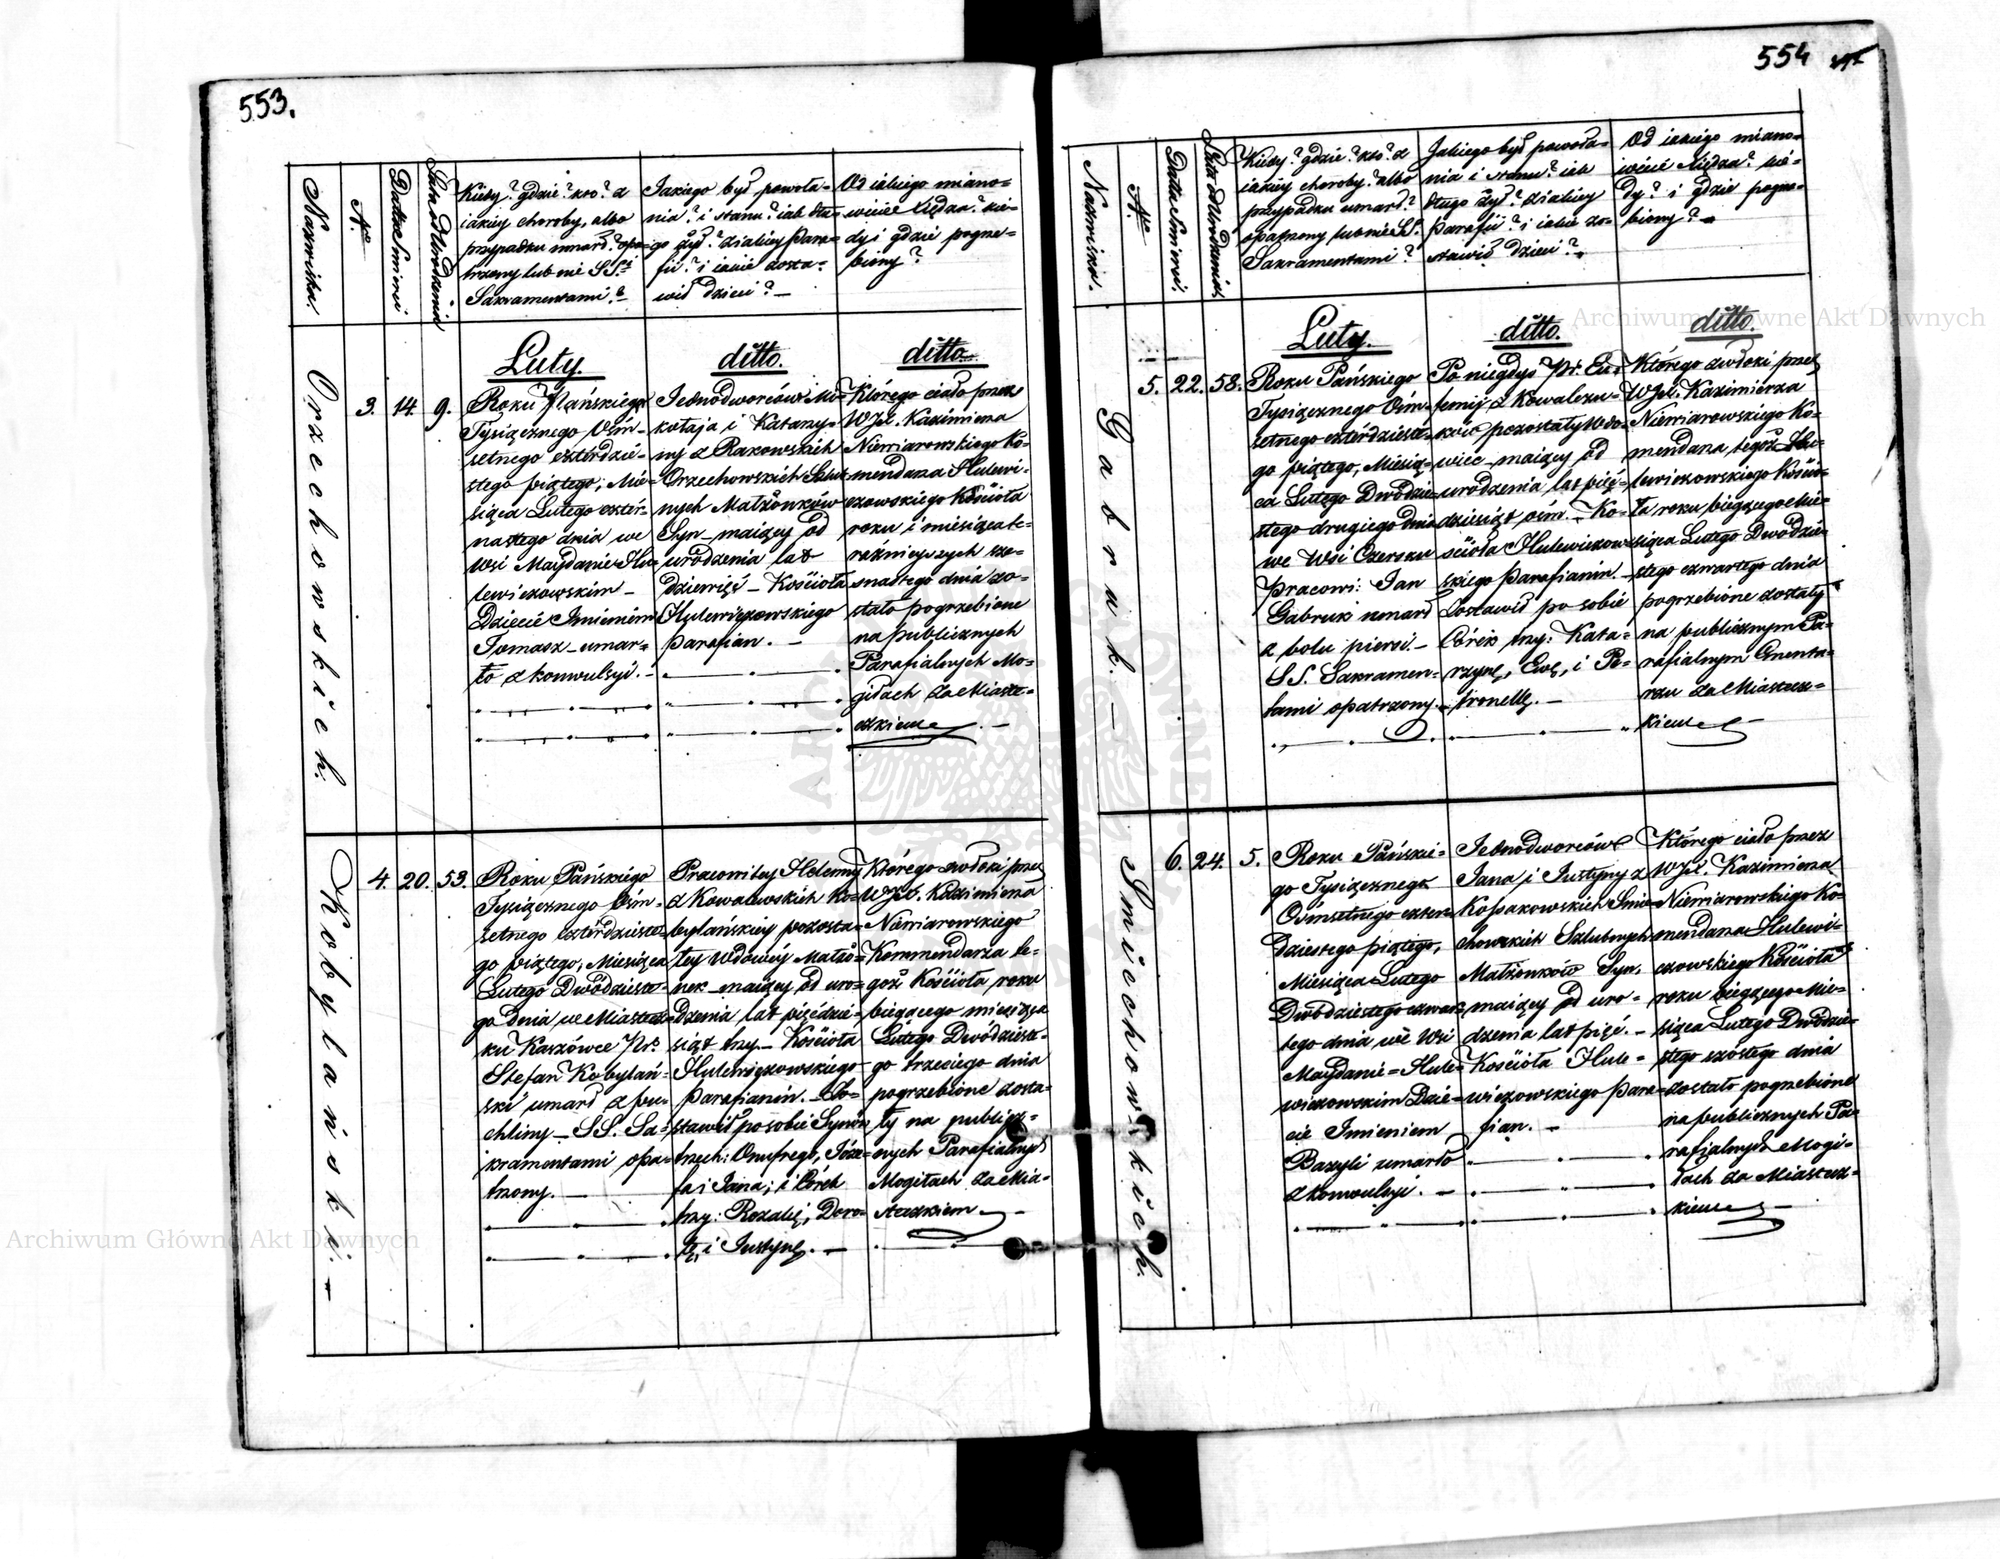 553.
Nazwiska.
No
Datta Smierci
Lata od Urodzenia
Kiedy? gdzie? kto? z
iakiey choroby, albo
przypadku umarł? opa=
trzony lub nie SS.mi
Sakramentami?
Jakiego był powoła=
nia? i stanu? iak dłu=
go żył? z iakiey Para=
fii? i iakie zosta=
wił dzieci? —
Od iakiego miano=
wicie Xiędza? kie=
dy i gdzie pogrze=
biony?
Luty.
ditto.
ditto.
Orzechowskich.
3.
14.
9.
Roku Pańskiego
Tysiącznego Ośm=
setnego czterdzie=
stego piątego, Mie=
siąca Lutego czter=
nastego dnia we
Wsi Maydanie Hu=
lewiczowskim —
Dziecie Imieniem
Tomasz — umar=
ło z konwulsyi. —
Jednodworców Mi=
kołaja i Katarzy=
ny z Rakowskich
Orzechowskich Szlub=
nych Małżonków
Syn — maiący od
urodzenia lat
dziewięć — Kościoła
Hulewiczowskiego
Parafian. —
Którego ciało przez
WJX. Kazimierza
Niemiarowskiego Ko=
mendarza Hulewi=
czowskiego Kościoła
roku i miesiąca te=
raźnieyszych sze=
snastego dnia zo=
stało pogrzebione
na publicznych
Parafialnych Mo=
giłach za Miaste=
czkiem. —
Kobylański. —
4.
20.
53.
Roku Pańskiego
Tysiącznego Ośm=
setnego czterdzieste=
go piątego, Miesiąca
Lutego Dwódzieste=
go dnia we Miastecz=
ku Kaszówce Pr.
Stefan Kobylań=
ski umarł z pu=
chliny — SS. Sa=
kramentami opa=
trzony. —
Pracowitey Helenny
z Kowalewskich Ko=
bylańskiey pozosta=
łey Wdowiey Małżo=
nek — maiący od uro=
dzenia lat pięćdzie=
siąt trzy — Kościoła
Hulewiczowskiego
Parafianin. — Zo=
stawił po sobie Synów
trzech: Onufrego, Józe=
fa i Jana; i Córek
trzy: Rozalię, Doro=
tę, i Justynę. —
Którego zwłoki przez
WJX. Kazimierza
Niemiarowskiego
Kommendarza te=
goż Kościoła roku
biegącego miesiąca
Lutego Dwódzieste=
go trzeciego dnia
pogrzebione zosta=
ły na publicz=
nych Parafialnych
Mogiłach za Mia=
steczkiem —
554
Nazwiska.
No
Datta Smierci.
Lata od Urodzenia
Kiedy? gdzie? kto? z
iakiey choroby? albo
przypadku umarł?
opatrzony lub nie SS.
Sakramentami?
Jakiego był powoła=
nia i stanu? iak
długo żył? z iakiey
Parafii? i iakie zo=
stawił dzieci? —
Od iakiego miano=
wicie Xiędza? kie=
dy? i gdzie pogrze=
biony? —
Luty.
ditto.
ditto.
Gabruk. —
5.
22.
58.
Roku Pańskiego
Tysiącznego Ośm=
setnego czterdzieste=
go piątego, Miesią=
ca Lutego Dwódzie=
stego drugiego dnia
we Wsi Czersku
Pracowi: Jan
Gabruk umarł
z bolu piersi. —
SS. Sakramen=
tami opatrzony. —
Po niegdyś Pr. Eu=
femii z Kowalczu=
ków pozostały Wdo=
wiec — maiący od
urodzenia lat pięć=
dziesiąt ośm. — Ko=
ścioła Hulewiczow=
skiego Parafianin. —
Zostawił po sobie
Córek trzy: Kata=
rzynę, Ewę, i Pe=
tronellę. —
Którego zwłoki przez
WJX. Kazimierza
Niemiarowskiego Ko=
mendarza tegoż Hu=
lewiczowskiego Kościo=
ła roku biegącego Mie=
siąca Lutego Dwódzie=
stego czwartego dnia
pogrzebione zostały
na publicznym Pa=
rafialnym Cmenta=
rzu za Miastecz=
kiem —
Smiechowskich.
6.
24.
5.
Roku Pańskie=
go Tysiącznego
Ośmsetnego czter=
dziestego piątego,
Miesiąca Lutego
Dwódziestego czwar=
tego dnia we Wsi
Maydanie=Hule=
wiczowskim Dzie=
cie Imieniem
Bazyli umarło
z konwulsyi. —
Jednodworców
Jana i Justyny z
Kossakowskich Smie=
chowskich Szlubnych
Małżonków Syn,
maiący od uro=
dzenia lat pięć. —
Kościoła Hule=
wiczowskiego Para=
fian. —
Którego ciało przez
WJX. Kazimierza
Niemiarowskiego Ko=
mendarza Hulewi=
czowskiego Kościoła
roku biegącego Mie=
siąca Lutego Dwódzie=
stego szóstego dnia
zostało pogrzebione
na publicznych Pa=
rafialnych Mogi=
łach za Miastecz=
kiem —
Archiwum Główne Akt Dawnych
Archiwum Główne Akt Dawnych